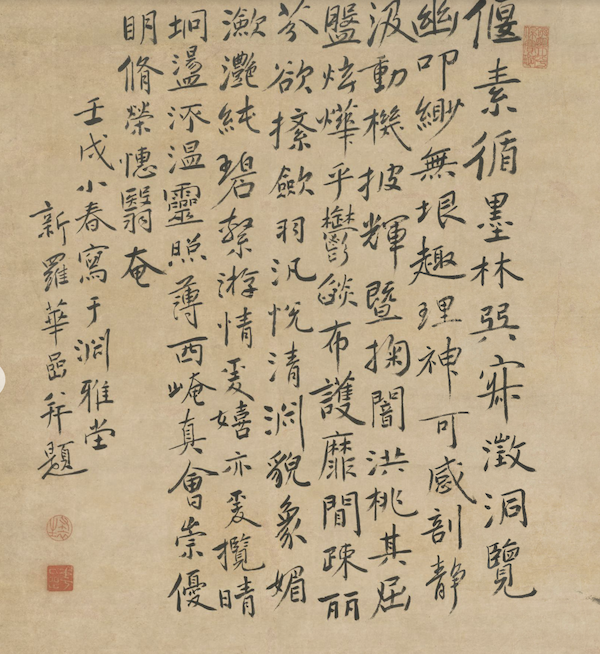 偃素循墨林巽寐澂洞覽
幽叩緲無垠趣理神可感剖静
汲動機披輝暨掬闇洪桃其屈
盤炫燁乎鬱燄布護靡間疎丽
芬欲搽歛羽汎悅清渊貌象媚
漱灔純碧縏游情爰嬉亦爰攬晴
坰盪㳅温靈照薄西崦真會崇優
明脩榮憓翳奄
壬戌小春寫于渊雅堂
新羅華喦并題